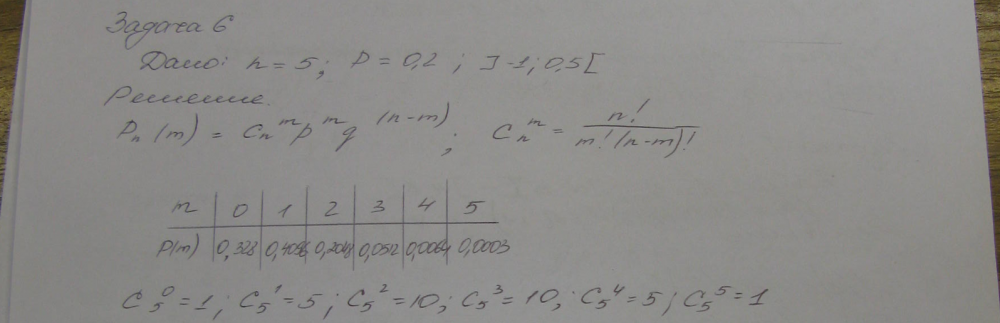 Задача 6
Дано: n = 5; P = 0,2; ]-1; 0,5[
Решение.
Pₙ(m) = Cₙᵐ pᵐ q⁽ⁿ⁻ᵐ⁾; Cₙᵐ = n! / m!(n-m)!
m 0 1 2 3 4 5
P(m) 0,328 0,4096 0,2048 0,0512 0,0064 0,0003
C₅⁰ = 1; C₅¹ = 5; C₅² = 10; C₅³ = 10; C₅⁴ = 5; C₅⁵ = 1